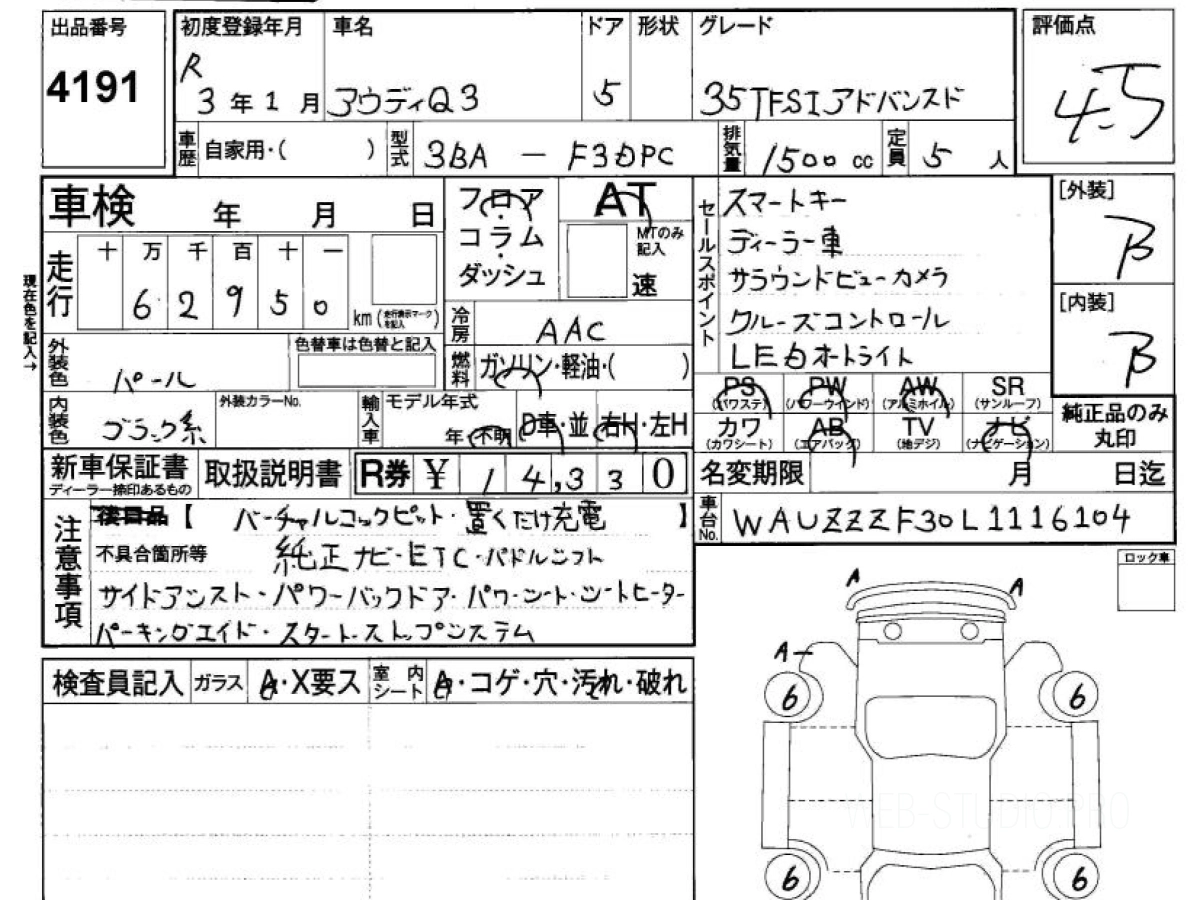 出品番号
4191
初度登録年月
R
3年1月
車名
アウディQ3
ドア
5
形状
グレード
35TFSIアドバンスド
評価点
4.5
車歴
自家用・( )
型式
3BA - F3DPC
排気量
1500cc
定員
5人
車検
年 月 日
フロア・コラム・ダッシュ
AT
MTのみ記入
速
セールスポイント
スマートキー
ディーラー車
サラウンドビューカメラ
クルーズコントロール
LEDオートライト
[外装]
B
[内装]
B
現在色を記入→
走行
十 万 千 百 十 一
6 2 9 5 0
km(走行表示マークを記入)
冷房
AAC
外装色
パール
色替車は色替と記入
燃料
ガソリン・軽油・( )
PS
(パワステ)
PW
(パワーウインド)
AW
(アルミホイル)
SR
(サンルーフ)
カワ
(カワシート)
AB
(エアバッグ)
TV
(地デジ)
ナビ
(ナビゲーション)
純正品のみ
丸印
内装色
ブラック系
外装カラーNo.
輸入車
モデル年式
年・不明
D車・並
右H・左H
新車保証書
ディーラー捺印あるもの
取扱説明書
R券
¥ 14,330
名変期限
月 日迄
注意事項
後日品【バーチャルコックピット・置くだけ充電】
不具合箇所等
純正ナビ・ETC・パドルシフト
サイドアシスト・パワーバックドア・パワーシート・シートヒーター
パーキングエイド・スタートストップシステム
車台No.
WAUZZZF30L1116104
ロック車
検査員記入
ガラス
A・X要ス
室内シート
A・コゲ・穴・汚れ・破れ
A
A
A
6
6
6
6
WEB-STUDIO.PRO